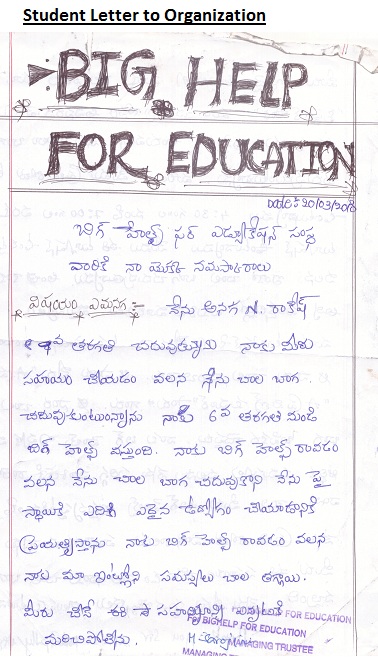 Student Letter to Organization
BIG HELP
FOR EDUCATION
Date: 20/03/2013
బిగ్ హెల్ప్ ఫర్ ఎడ్యుకేషన్ సంస్థ
వారికి నా యొక్క నమస్కారాలు
విషయం ఏమనగ :- నేను అనగ N. రాకేష్
వ తరగతి చదువుతున్నాను నాకు మీరు
సహయం చేయడం వలన నేను చాల బాగ
చదువుకుంటున్నాను నాకు 6వ తరగతి నుండి
బిగ్ హెల్ప్ వస్తుంది. నాకు బిగ్ హెల్ప్ రావడం
వలన నేను చాల బాగ చదువుకొని నేను పై
స్థాయికి ఎదిగి ఏదైన ఉద్యోగం చేయడానికి
ప్రయత్నిస్తాను నాకు బిగ్ హెల్ప్ రావడం వలన
నాకు మా ఇంట్లోని సమస్యలు చాల తగ్గాయి.
మీరు చేసే ఈ సహయాన్ని ఎప్పటికి FOR EDUCATION
For BIGHELP FOR EDUCATION
మరిచిపోలేను.
MANAGING TRUSTEE
MANAGING